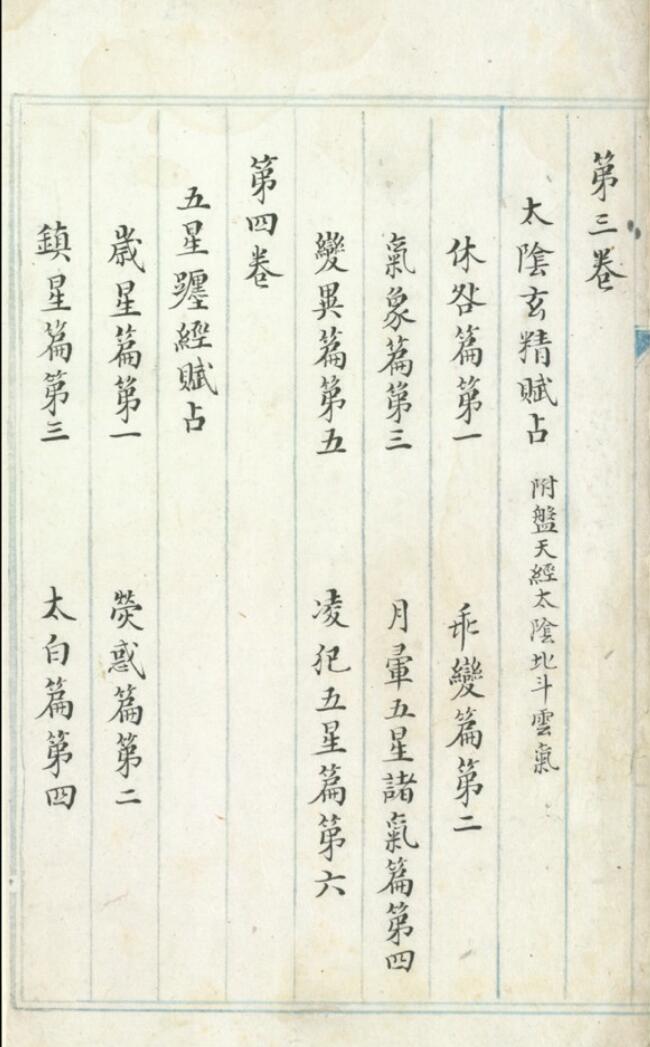 第三卷
太陰玄精賦占 附盤天經太陰北斗雲氣
休咎篇第一 乖變篇第二
氣象篇第三 月暈五星諸氣篇第四
變異篇第五 凌犯五星篇第六
第四卷
五星躔經賦占
歲星篇第一 熒惑篇第二
鎮星篇第三 太白篇第四